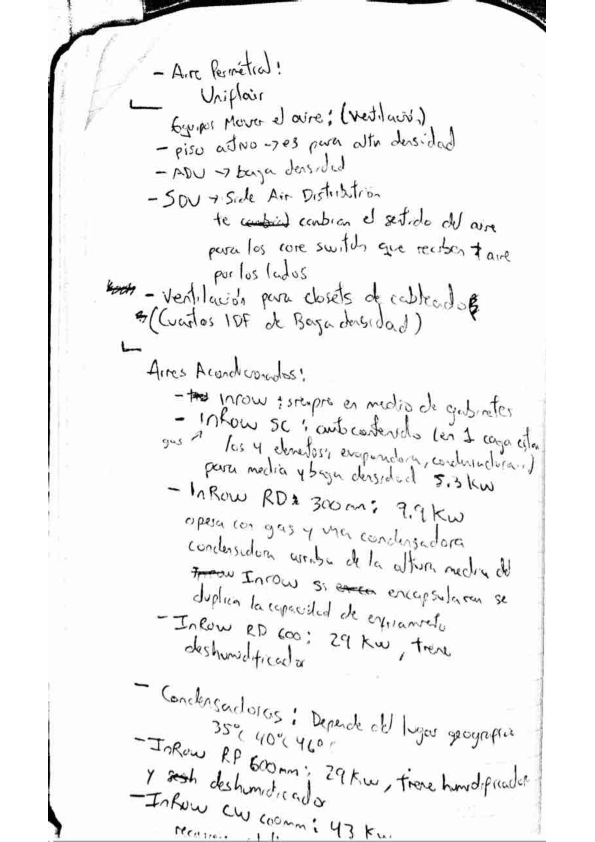 - Aire Perimétral:
Uniflair
Equipos Mover el aire: (ventilación)
- piso activo → es para alta densidad
- ADU → baja densidad
- SDU → Side Air Distribution
te cambian el setido del aire
para los core switch que reciben + aire
por los lados
- Ventilación para closets de cableados
(Cuartos IDF de Baja densidad)
Aires Acondicionados:
- Inrow : siempre en medio de gabinetes
- InRow SC : autocontenido (en 1 caja estan
gas los 4 elementos; evaporadora, condensadora...)
para media y baja densidad 5.3 kW
- InRow RD 300mm: 9.9 Kw
opera con gas y una condensadora
condensadora arriba de la altura media del
Inrow Si encapsularan se
duplica la capacidad de enfriamiento
- InRow RD 600: 29 Kw, tiene
deshumidificador
- Condensadoras: Depende del lugar geografico
35°C 40°C 46°
- InRow RP 600mm: 29Kw, tiene humidificador
y deshumidicador
- InRow CW 600mm: 43 Kw.